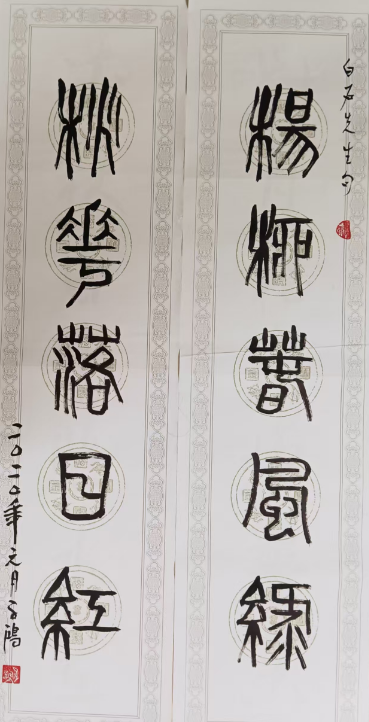 白石先生句
楊柳春風綠
桃華落日紅
二〇二〇年元月子鴻